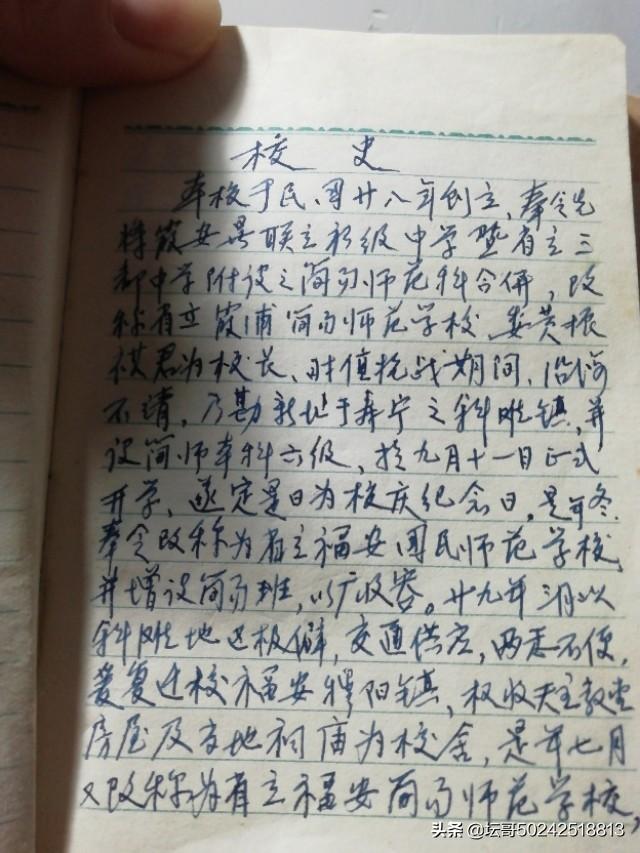 校 史
本校于民国廿八年创立，奉令先
将霞安县联立初级中学暨省立三
都中学附设之简易师范科合併，改
称省立霞浦简易师范学校，委黄振
祺君为校长、时值抗战期间，沿海
不靖，乃勘新地于寿宁之斜滩镇，并
设简师本科六级，於九月十一日正式
开学，遂定是日为校庆纪念日，是年冬
奉令改称为省立福安国民师范学校，
并增设简易班，以广收容。廿九年三月以
斜滩地迟极僻，交通供应，两悉不便，
爰复迁校福安穆阳镇，权收天主教堂
房屋及当地祠庙为校舍，是年七月
又改称为省立福安简易师范学校，
头条 @坛哥50242518813